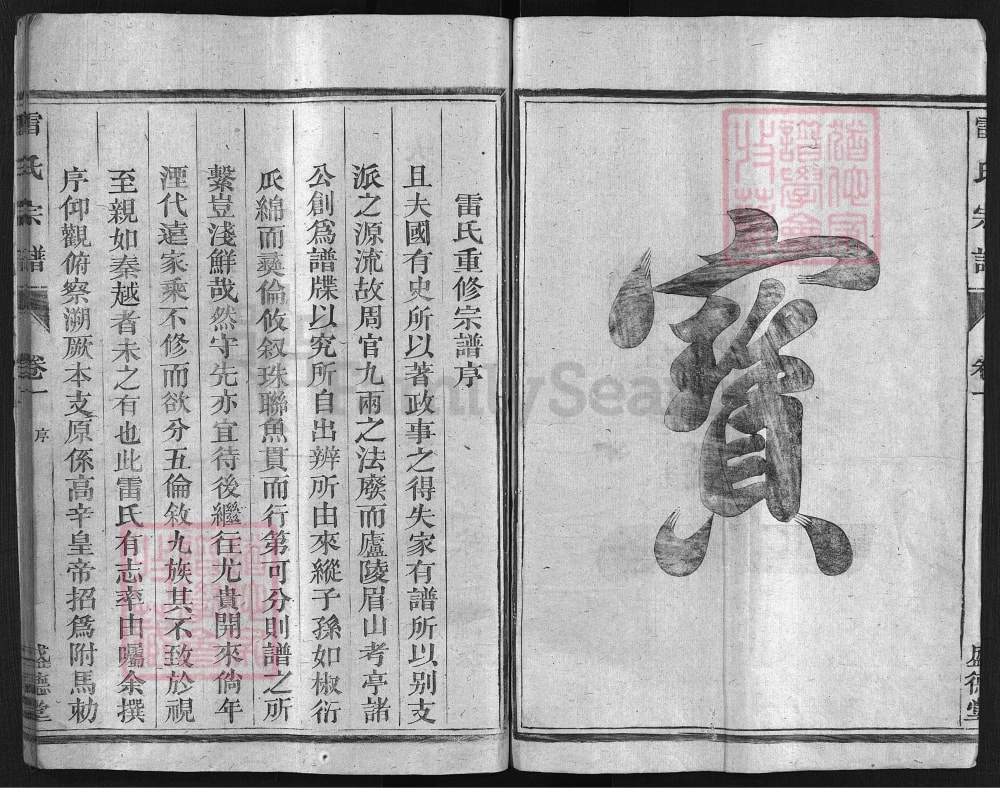 雷氏宗譜
卷一
盛德堂
寶
雷氏重修宗譜序
且夫國有史所以著政事之得失家有譜所以别支
派之源流故周官九兩之法廢而廬陵眉山考亭諸
公創爲譜牒以究所自出辨所由來縱子孫如椒衍
瓜綿而彞倫攸叙珠聯魚貫而行第可分則譜之所
繫豈淺鮮哉然守先亦宜待後繼往尤貴開來倘年
湮代遠家乘不修而欲分五倫敘九族其不致於視
至親如秦越者未之有也此雷氏有志率由囑余撰
序仰觀俯察溯厥本支原係高辛皇帝招爲附馬勅
雷氏宗譜
卷一
序
盛德堂
FamilySearch